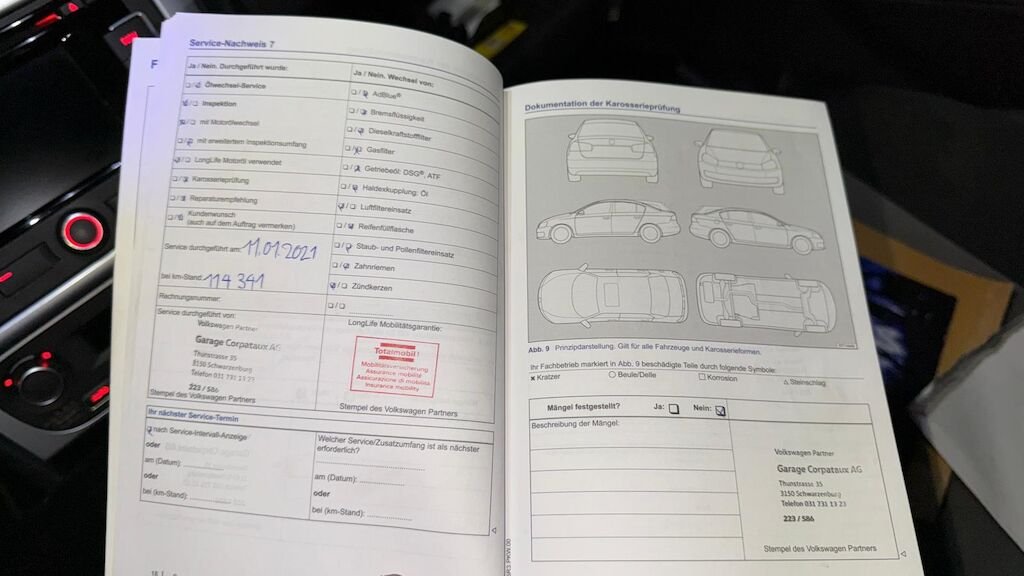 Service-Nachweis 7
Ja / Nein. Durchgeführt wurde:
Ölwechsel-Service
Inspektion
mit Motorölwechsel
mit erweitertem Inspektionsumfang
LongLife Motoröl verwendet
Karosserieprüfung
Reparaturempfehlung
Kundenwunsch
(auch auf dem Auftrag vermerken)
Service durchgeführt am: 11.01.2021
bei km-Stand: 114 341
Rechnungsnummer:
Service durchgeführt von:
Volkswagen Partner
Garage Corpataux AG
Thunstrasse 35
3150 Schwarzenburg
Telefon 031 731 13 23
223 / 586
Stempel des Volkswagen Partners
Ja / Nein. Wechsel von:
AdBlue®
Bremsflüssigkeit
Dieselkraftstofffilter
Gasfilter
Getriebeöl: DSG®, ATF
Haldexkupplung: Öl
Luftfiltereinsatz
Reifenfüllflasche
Staub- und Pollenfiltereinsatz
Zahnriemen
Zündkerzen
LongLife Mobilitätsgarantie:
Totalmobil!
Mobilitätsversicherung
Assurance mobilité
Assicurazione di mobilità
Insurance mobility
Stempel des Volkswagen Partners
Ihr nächster Service-Termin
nach Service-Intervall-Anzeige
oder
am (Datum):
oder
bei (km-Stand):
Welcher Service/Zusatzumfang ist als nächster
erforderlich?
am (Datum):
oder
bei (km-Stand):
Dokumentation der Karosserieprüfung
Abb. 9 Prinzipdarstellung. Gilt für alle Fahrzeuge und Karosserieformen.
Ihr Fachbetrieb markiert in Abb. 9 beschädigte Teile durch folgende Symbole:
× Kratzer ○ Beule/Delle □ Korrosion △ Steinschlag
Mängel festgestellt? Ja: Nein:
Beschreibung der Mängel:
Volkswagen Partner
Garage Corpataux AG
Thunstrasse 35
3150 Schwarzenburg
Telefon 031 731 13 23
223 / 586
Stempel des Volkswagen Partners